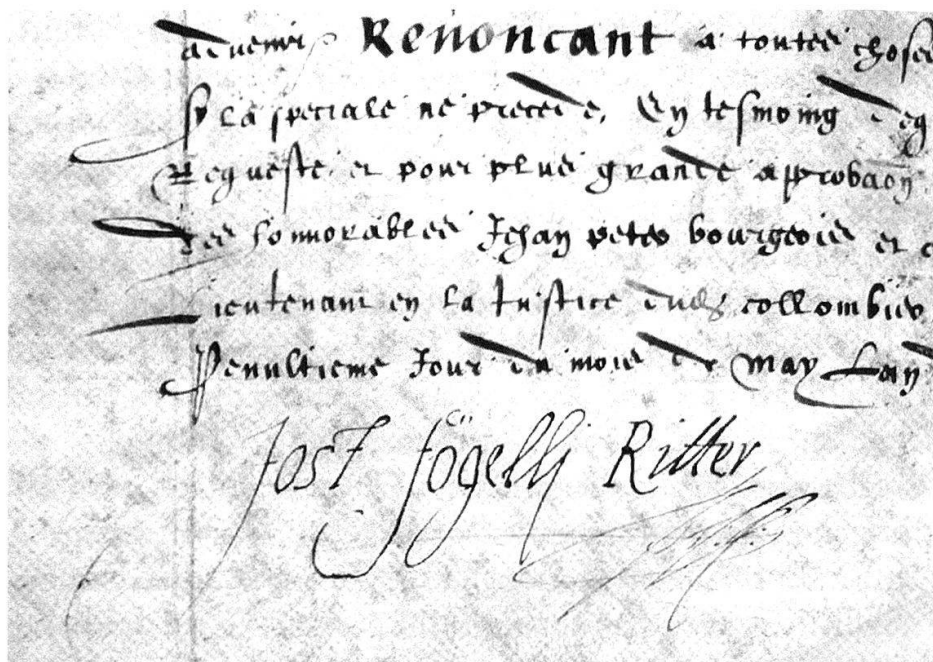 advenir Renoncant a toutes choses
sy la speciale ne precede, En tesmoing deq
Requeste et pour plus grande approbaon
des honnorables Jehan peter bourgeois et c
Lieutenant en la Justice dud collombier
Penultieme Jour du mois de May Lan
Jost fögellj Ritter